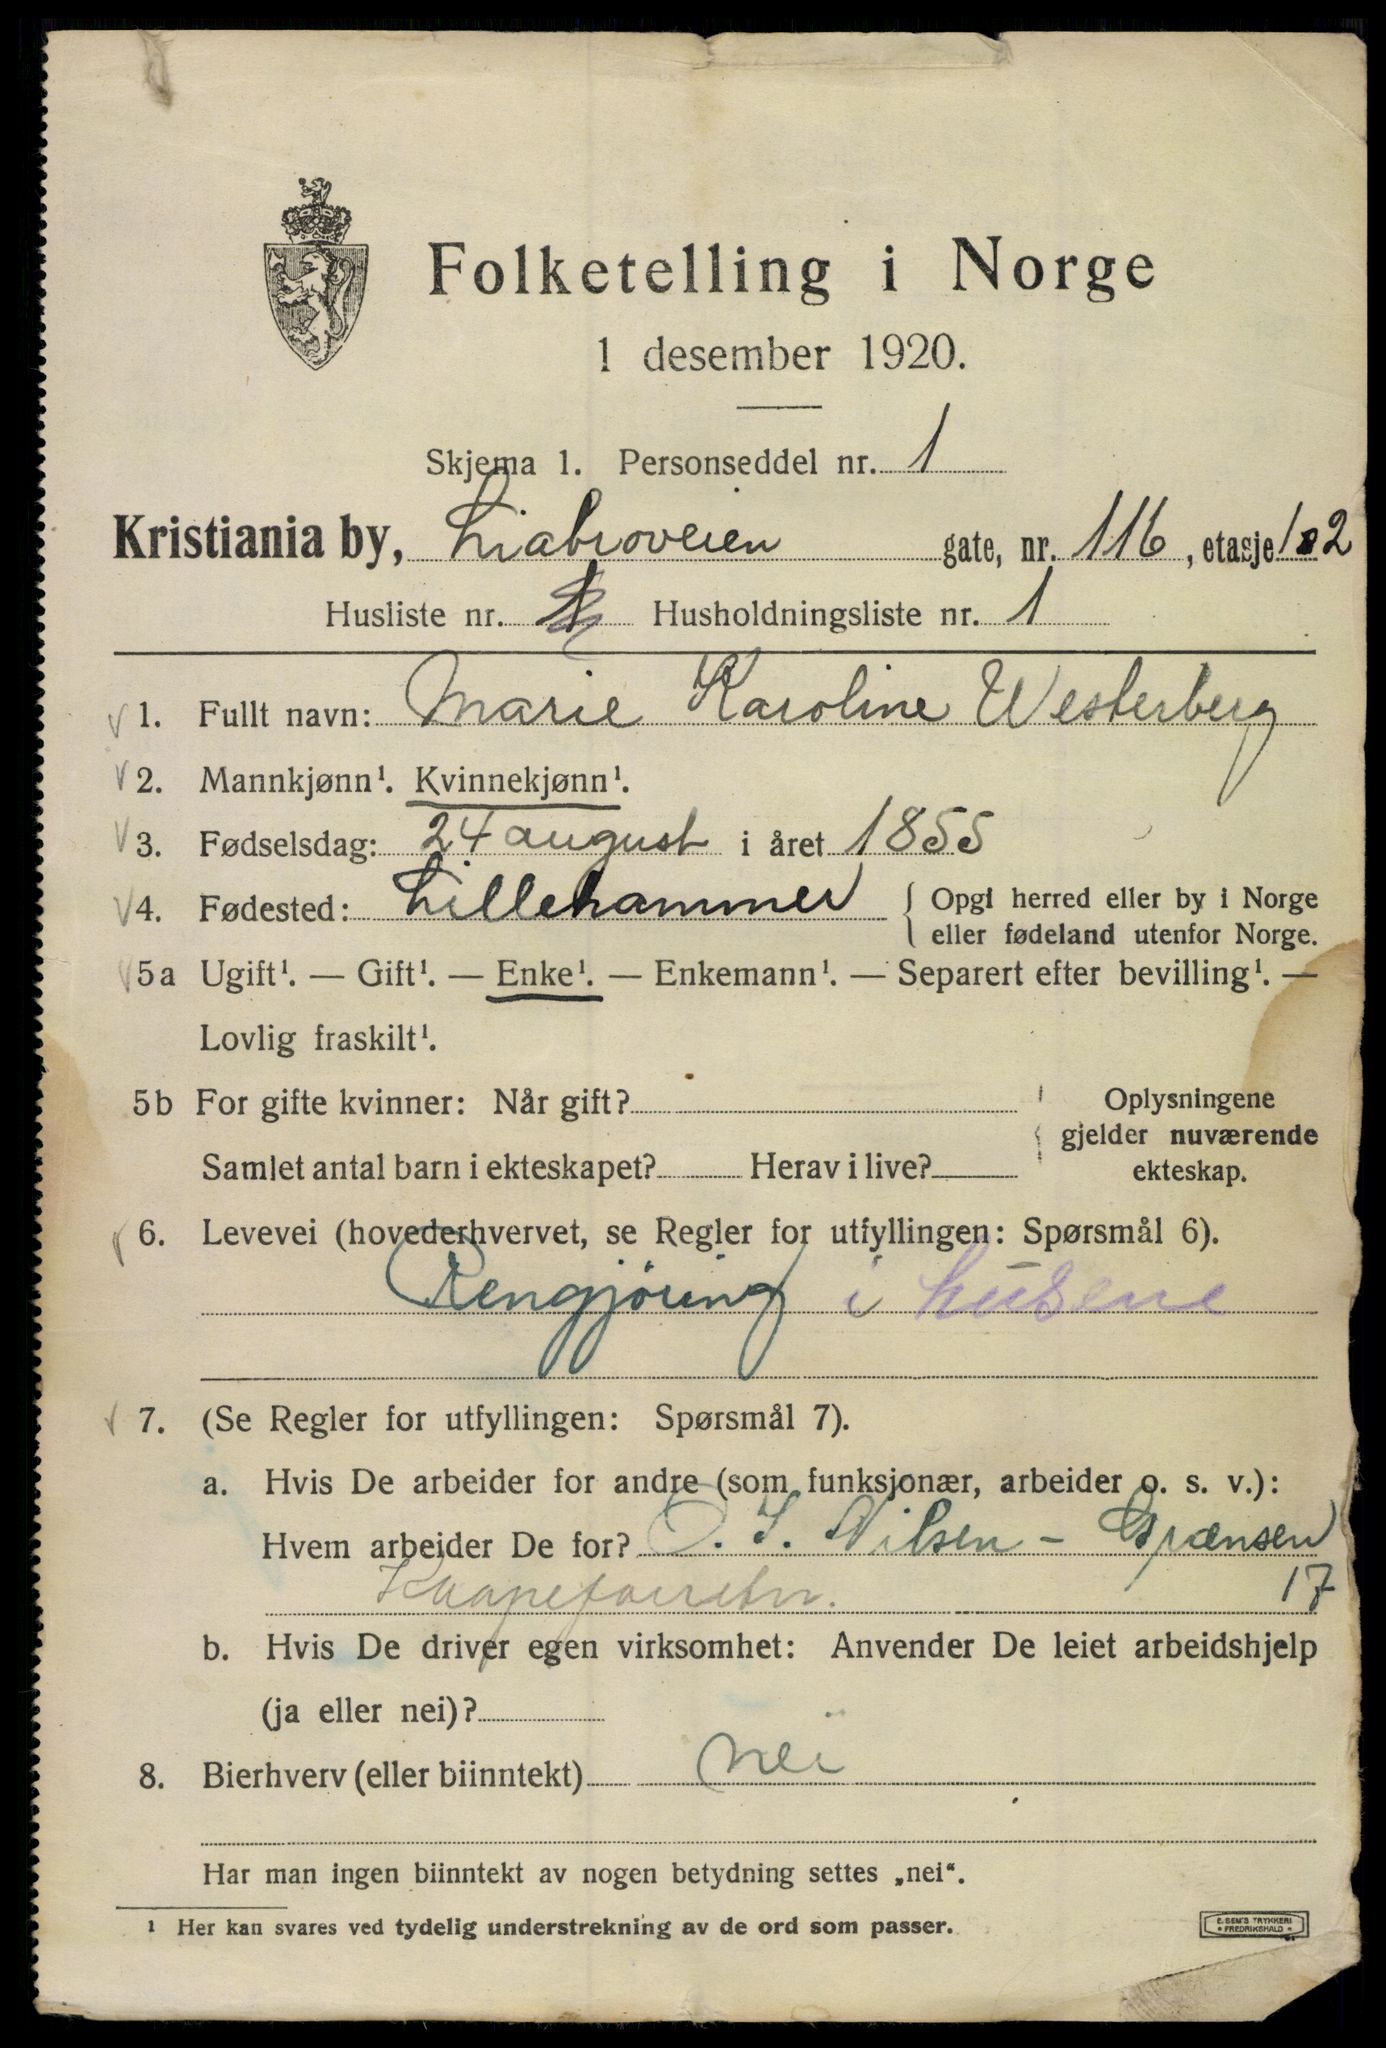 Folketelling i Norge
1 desember 1920.
Skjema 1. Personseddel nr. 1
Kristiania by, Liabroveien gate, nr. 116, etasje 1 2
Husliste nr. 1 Husholdningsliste nr. 1
1. Fullt navn: Marie Karoline Westerberg
2. Mannkjønn¹. Kvinnekjønn¹.
3. Fødselsdag: 24 august i året 1855
4. Fødested: Lillehammer { Opgi herred eller by i Norge
eller fødeland utenfor Norge.
5a Ugift¹. — Gift¹. — Enke¹. — Enkemann¹. — Separert efter bevilling¹. —
Lovlig fraskilt¹.
5b For gifte kvinner: Når gift? Oplysningene
gjelder nuværende
Samlet antal barn i ekteskapet? Herav i live? ekteskap.
6. Levevei (hovederhvervet, se Regler for utfyllingen: Spørsmål 6).
Rengjöring i husene
7. (Se Regler for utfyllingen: Spørsmål 7).
a. Hvis De arbeider for andre (som funksjonær, arbeider o. s. v.):
Hvem arbeider De for? O. I. Nilsen - Grænsen
Kaapeforretn. 17
b. Hvis De driver egen virksomhet: Anvender De leiet arbeidshjelp
(ja eller nei)?
8. Bierhverv (eller biinntekt) nei
Har man ingen biinntekt av nogen betydning settes „nei“.
¹ Her kan svares ved tydelig understrekning av de ord som passer.
E. SEM'S TRYKKERI
* FREDRIKSHALD *